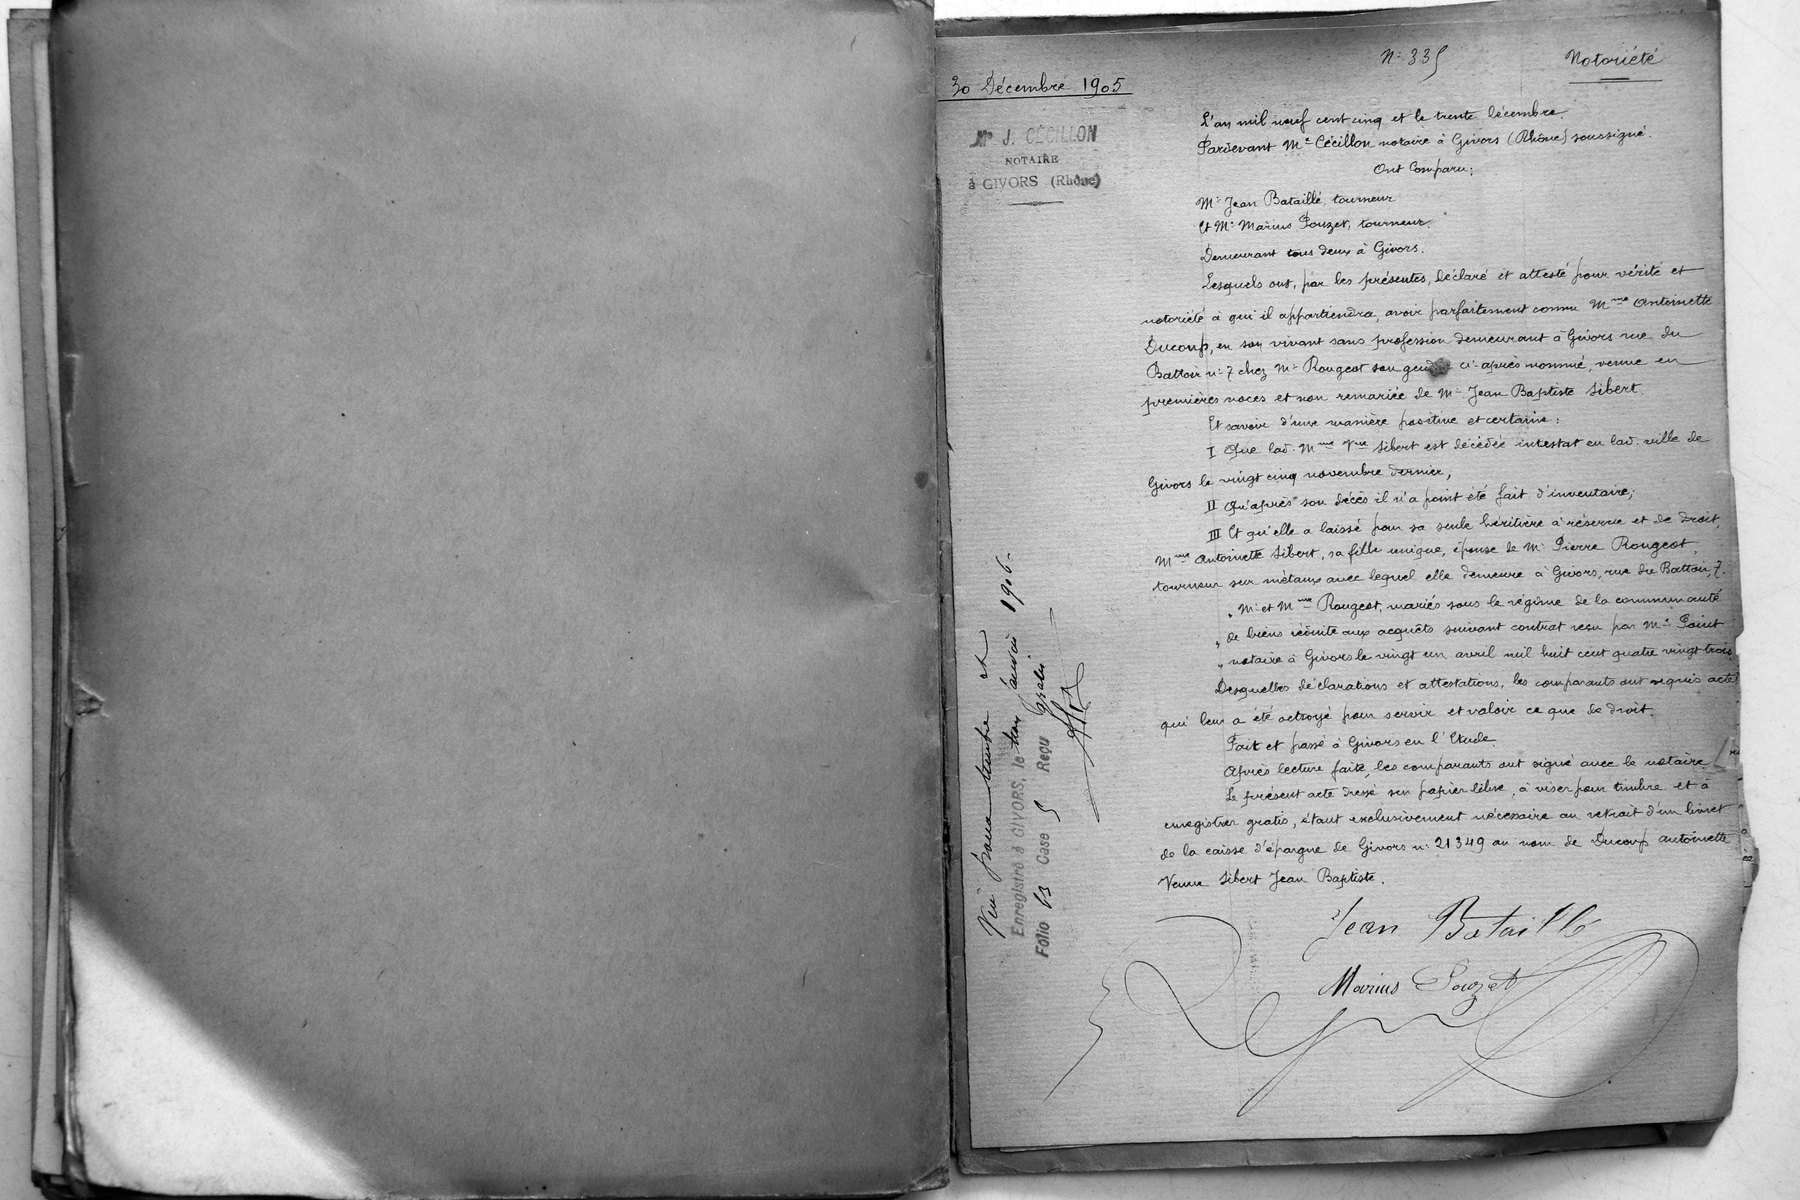 N° 335
Notoriété
30 Décembre 1905
Me J. CÉCILLON
NOTAIRE
à GIVORS (Rhône)
L'an mil neuf cent cinq et le trente décembre.
Pardevant Me Cécillon notaire à Givors (Rhône) soussigné.
Ont Comparu:
Mr Jean Bataillé, tourneur
Et Mr Marius Pouzet, tourneur.
Demeurant tous deux à Givors.
Lesquels ont, par les présentes, déclaré et attesté pour vérité et
notoriété à qui il appartiendra, avoir parfaitement connu Mme Antoinette
Ducoup, en son vivant sans profession demeurant à Givors rue du
Battoir n° 7 chez Mr Rougeot son gendre ci-après nommé, veuve en
premières noces et non remariée de Mr Jean Baptiste Sibert.
Et savoir d'une manière positive et certaine:
I Que lad. Mme Vve Sibert est décédée intestat en lad. ville de
Givors le vingt cinq novembre dernier,
II Qu'après son décès il n'a point été fait d'inventaire;
III Et qu'elle a laissé pour sa seule héritière à réserve et de droit,
Mme Antoinette Sibert, sa fille unique, épouse de Mr Pierre Rougeot,
tourneur sur métaux avec lequel elle demeure à Givors, rue du Battoir, 7.
„ Mr et Mme Rougeot, mariés sous le régime de la communauté
„ de biens réduite aux acquêts suivant contrat reçu par Me Point
„ notaire à Givors le vingt un avril mil huit cent quatre vingt trois
Desquelles déclarations et attestations, les comparants ont requis acte
qui leur a été octroyé pour servir et valoir ce que de droit.
Fait et passé à Givors en l'Etude.
Après lecture faite, les comparants ont signé avec le notaire
Le présent acte dressé sur papier libre, à viser pour timbre et à
enregistrer gratis, étant exclusivement nécessaire au retrait d'un livret
de la caisse d'épargne de Givors n° 21349 au nom de Ducoup Antoinette
Veuve Sibert Jean Baptiste.
Jean Bataillé
Marius Pouzet
Visé pour timbre et
Enregistré à GIVORS, le trois janvier 1906.
Folio 63 Case 5 Reçu Gratis